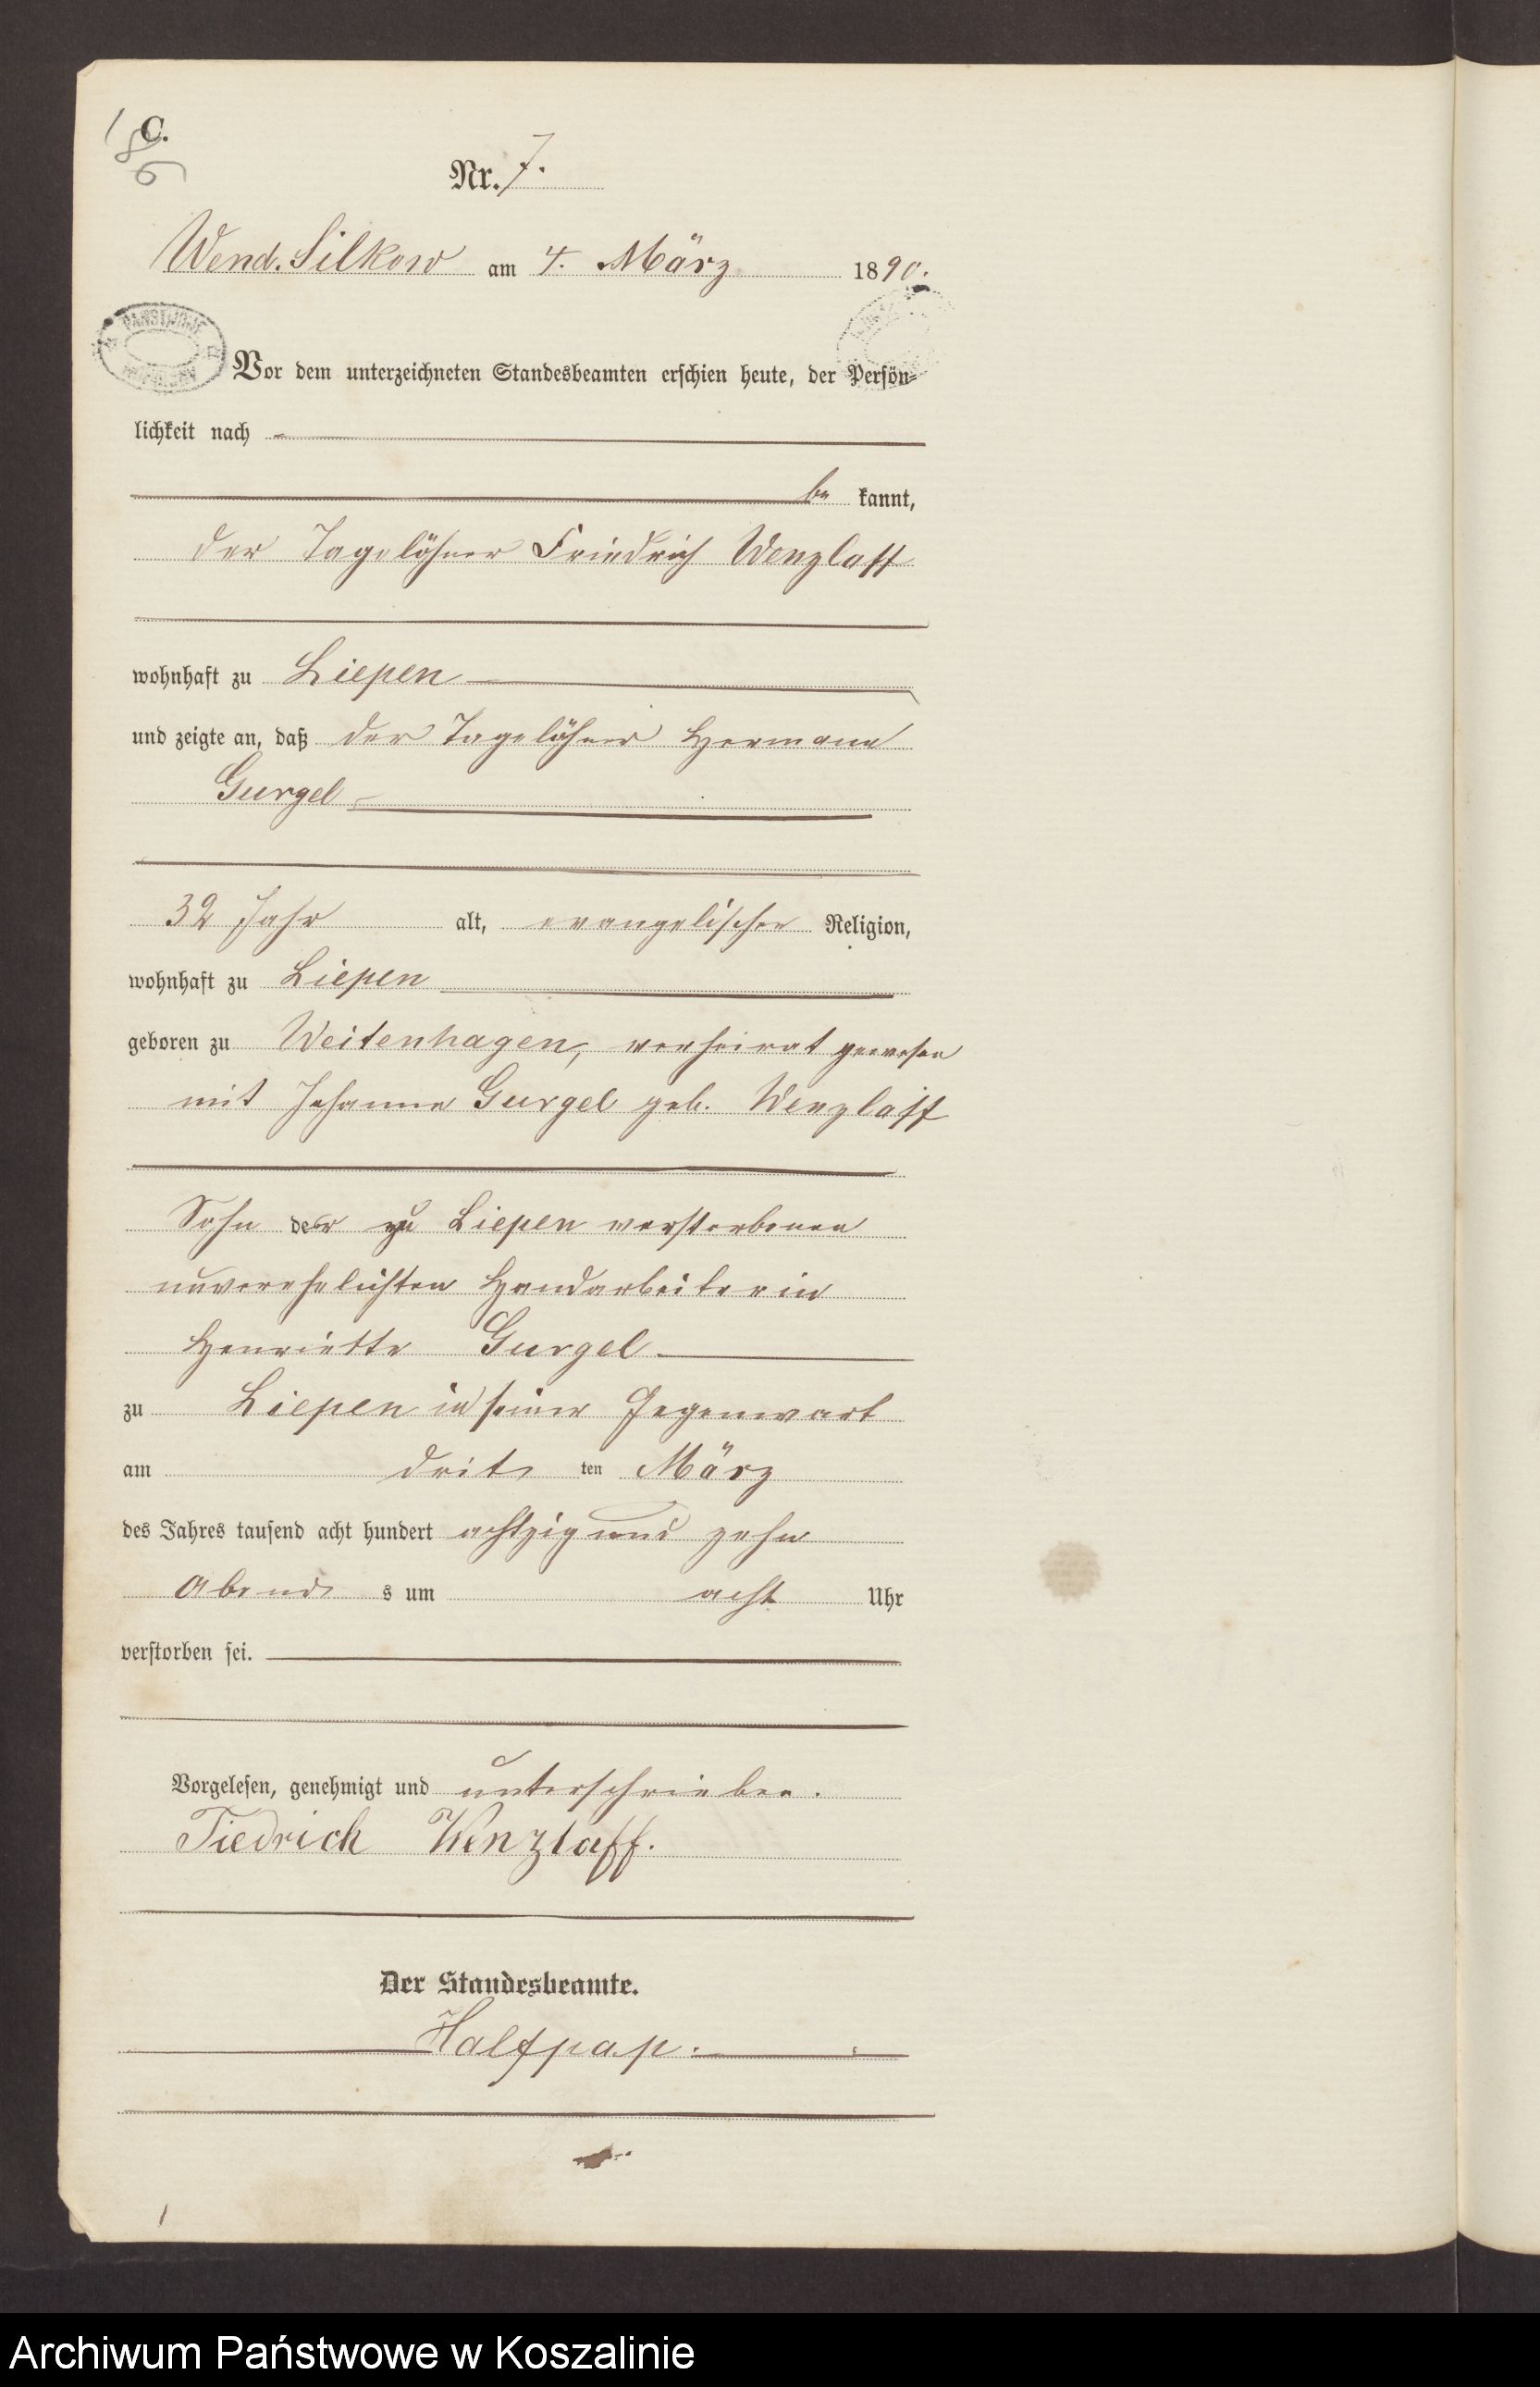 C.
Nr. 7.
Wend. Silkow am 4. März 1890.
Vor dem unterzeichneten Standesbeamten erschien heute, der Persön-
lichkeit nach
be kannt,
der Tagelöhner Friedrich Wenzlaff
wohnhaft zu Liepen
und zeigte an, daß der Tagelöhner Hermann
Gurgel
32 Jahr alt, evangelischer Religion,
wohnhaft zu Liepen
geboren zu Weitenhagen, verheirat gewesen
mit Johanne Gurgel geb. Wenzlaff
Sohn der zu Liepen verstorbenen
unverehelichten Handarbeiterin
Henriette Gurgel
zu Liepen in seiner Gegenwart
am drit ten März
des Jahres tausend acht hundert achtzig und zehn
Abend s um acht Uhr
verstorben sei.
Vorgelesen, genehmigt und unterschrieben.
Fiedrich Wenzlaff.
Der Standesbeamte.
Halfpap.
Archiwum Państwowe w Koszalinie